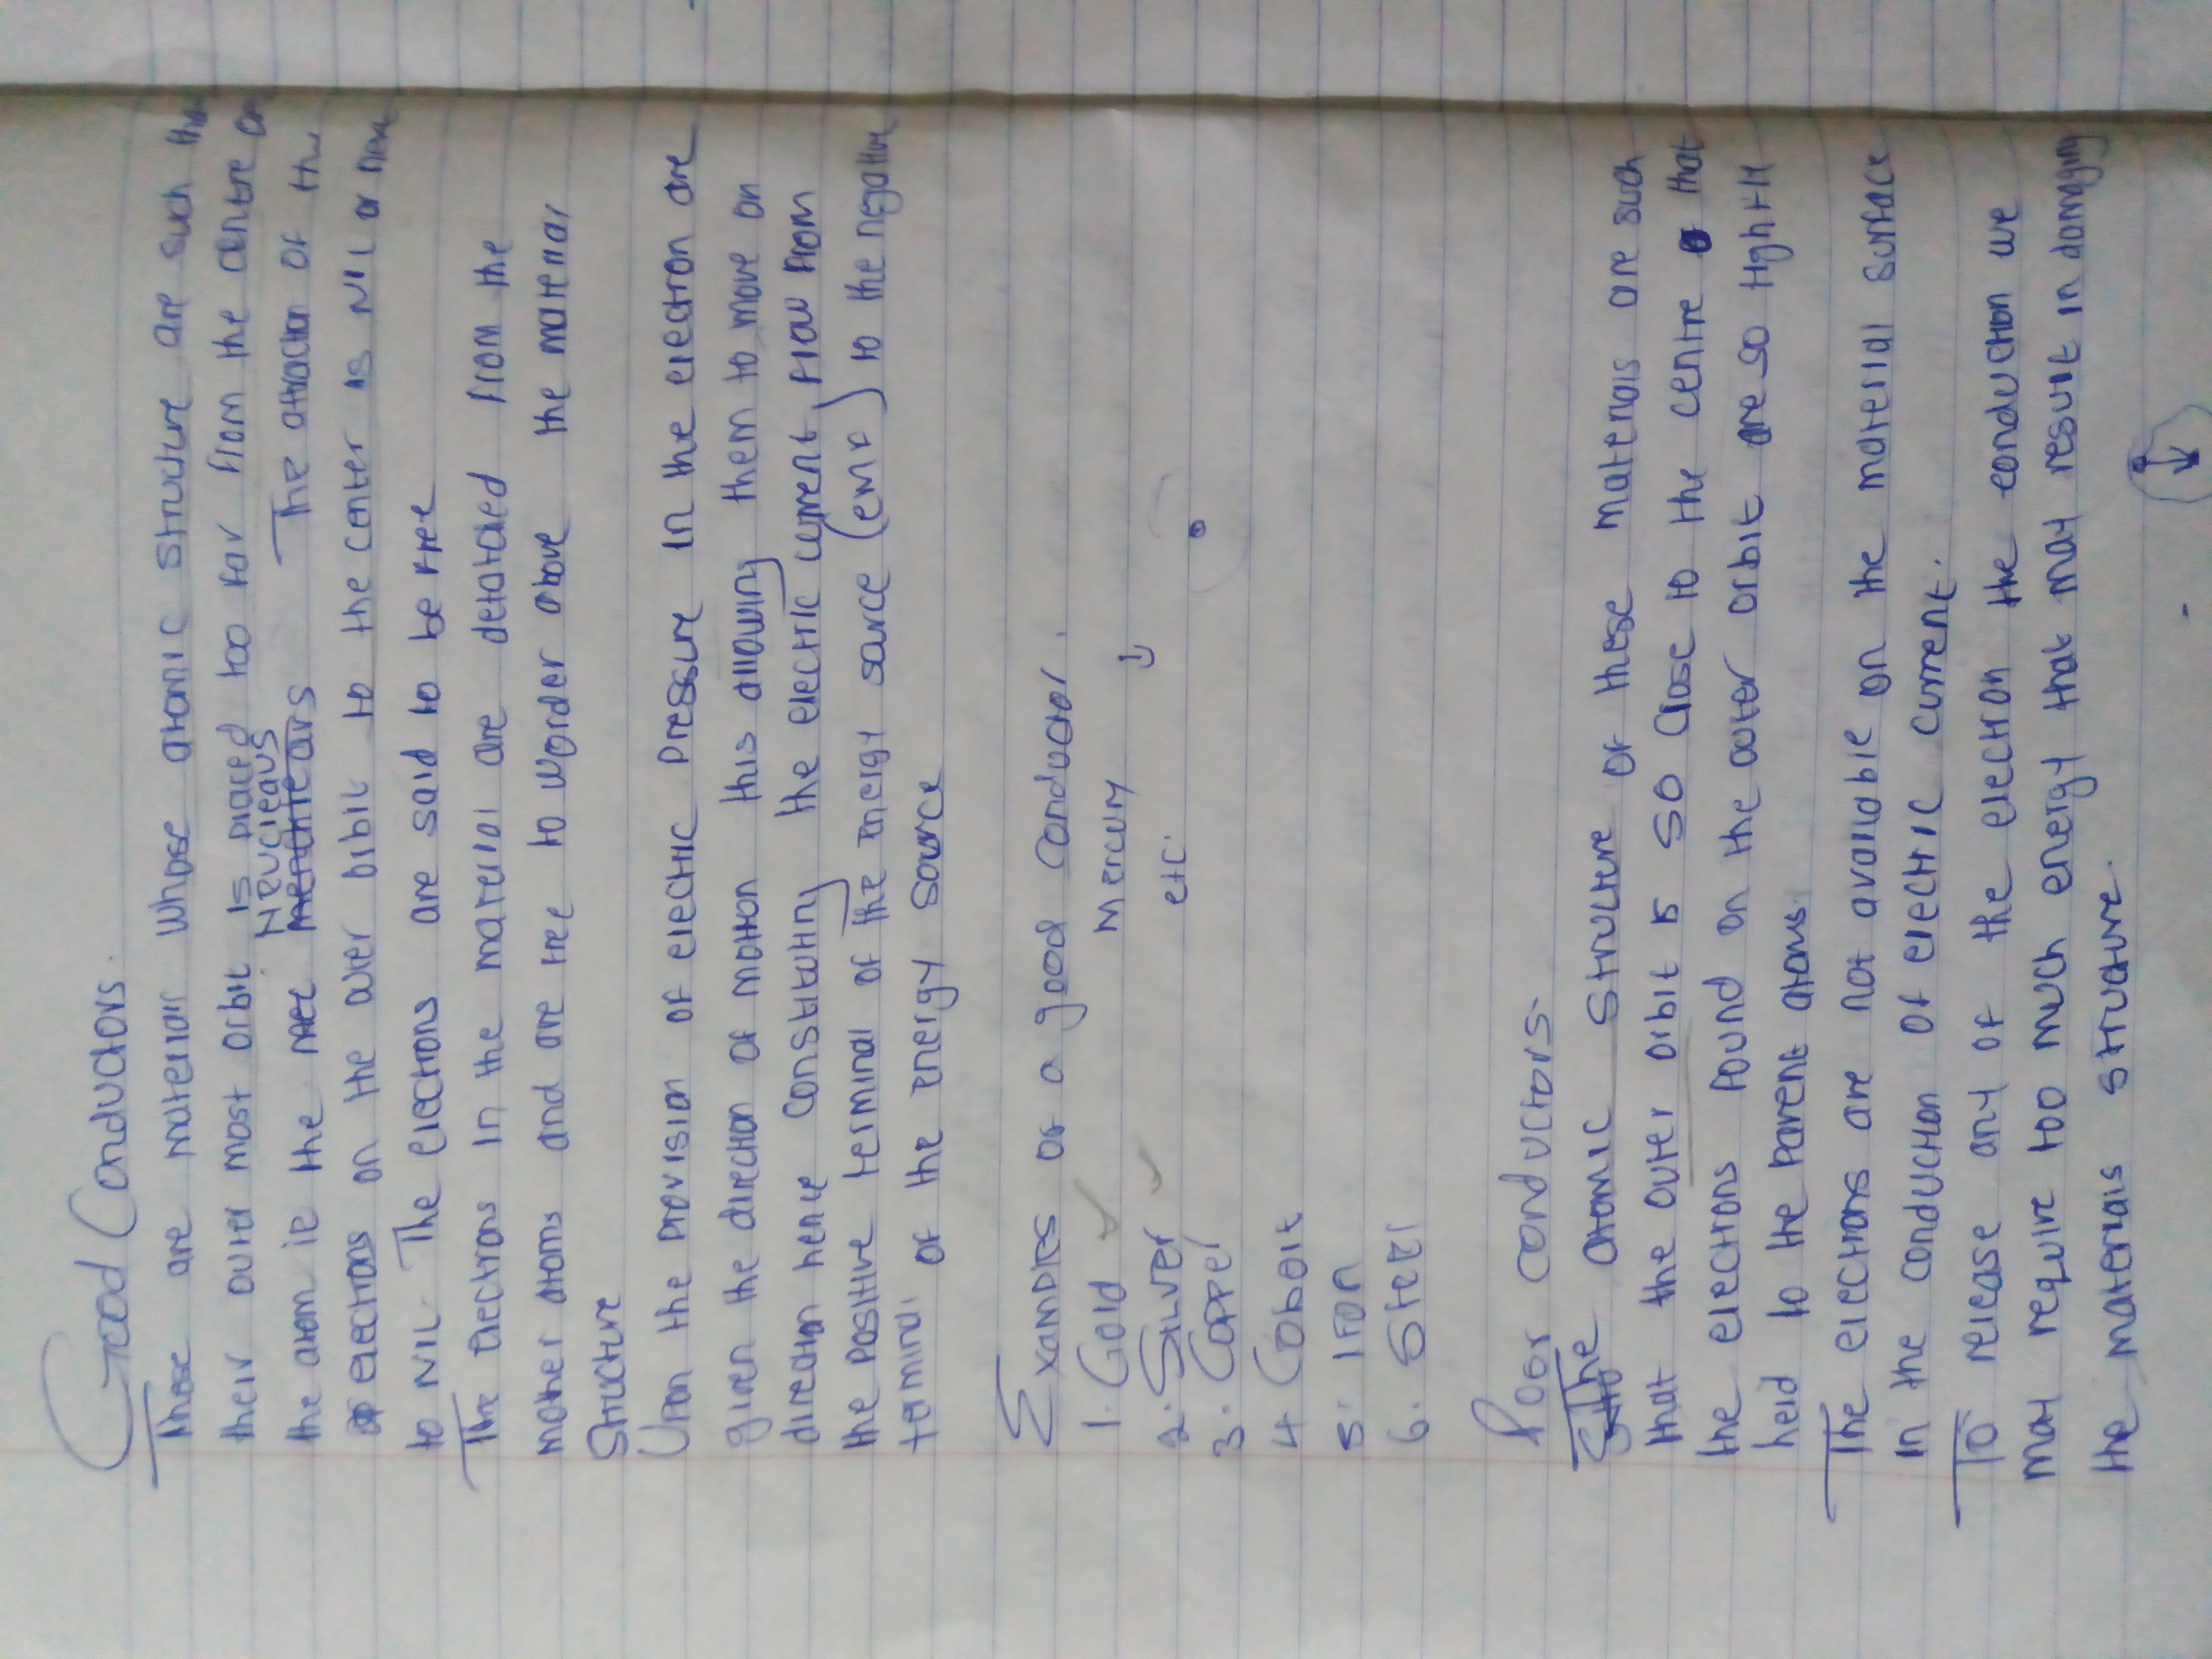 Good Conductors.
These are materials whose atomic structure are such
their outer most orbit is placed too far from the centre of
Neucleaus
the atom ie the The attraction of the
electrons on the outer orbit to the center is NIL or next
to NIL. The electrons are said to be free
The Electrons in the material are detatched from the
mother atoms and are free to worder above the material
Structure
Upon the provision of electric pressure in the electron are
given the direction of motion this allowing them to move on
direction hence constituting the electric current, flow from
the positive terminal of the energy source (emf) to the negative
terminal of the energy source
Examples of a good conductor.
1. Gold Mercury
2. Silver etc.
3. Copper
4 Cobolt
5. Iron
6. Steel
Poor conductors.
The atomic structure of these materials are such
that the outer orbit is so close to the centre that
the electrons found on the outer orbit are so tightly
held to the parent atoms.
The electrons are not available on the material surface
in the conduction of electric current.
To release any of the electron the conduction we
may require too much energy that may result in damaging
the materials structure.